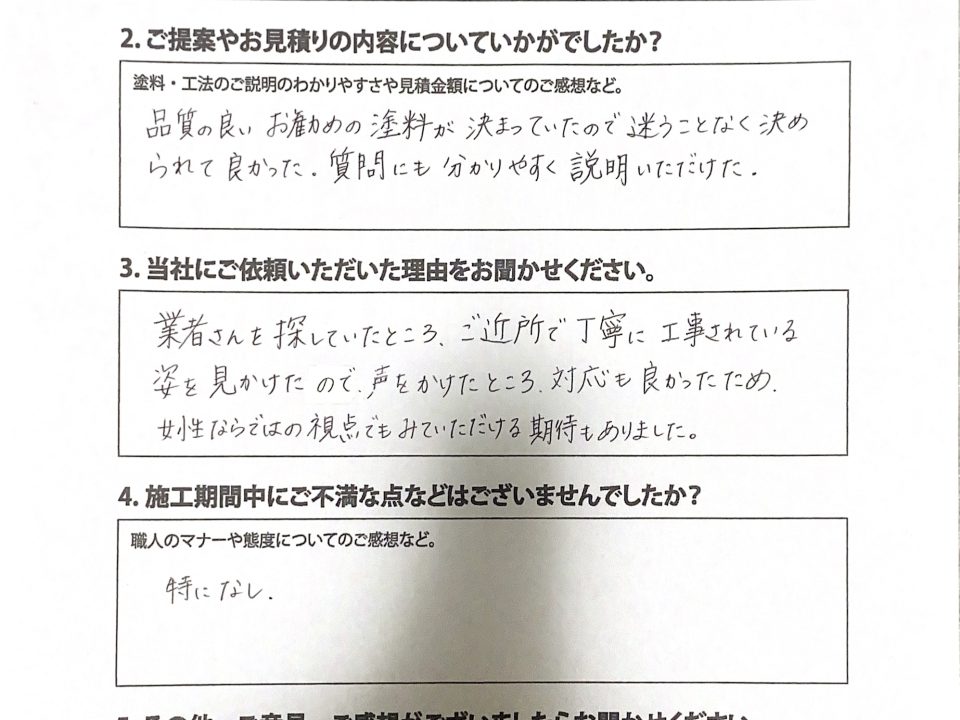 2. ご提案やお見積りの内容についていかがでしたか?
塗料・工法のご説明のわかりやすさや見積金額についてのご感想など。
品質の良い お勧めの塗料が 決まっていたので 迷うことなく決め
られて良かった. 質問にも 分かりやすく説明いただけた.
3. 当社にご依頼いただいた理由をお聞かせください。
業者さんを探していたところ、ご近所で丁寧に工事されている
姿を見かけたので、声をかけたところ、対応も良かったため.
女性ならではの視点でもみていただける期待もありました。
4. 施工期間中にご不満な点などはございませんでしたか?
職人のマナーや態度についてのご感想など。
特になし.
5. その他、ご意見、ご感想がございましたらお聞かせください